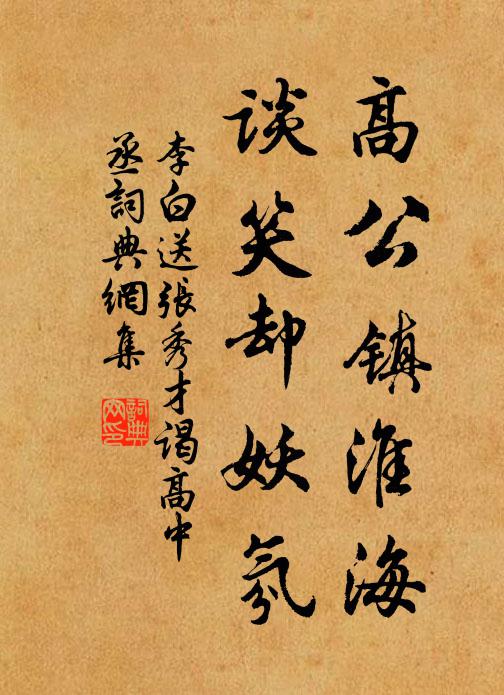 高公镇淮海
谈笑却妖氛
李白送張秀才謁高中
丞詞典網集
詞典
网印